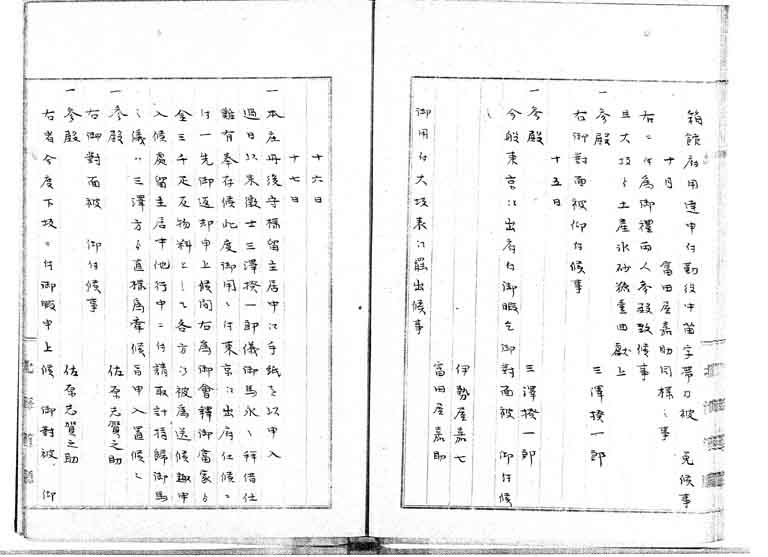 箱館府用達申付勤役中苗字帯刀被 免候事
十月 富田屋嘉助同様之事
右ニ付為御禮両人参殿致候事
且大坂ゟ土産氷砂糖壱曲献上
一 参殿 三澤揆一郎
右御對面被仰付候事
十五日
一 参殿 三澤揆一郎
今般東京江出府付御暇乞御對面被 仰付候
伊勢屋嘉七
富田屋嘉助
御用付大坂表江罷出候事
十六日
十七日
一 本庄丹後守様留主居中江手紙を以申入
過日以来徴士三澤揆一郎儀御馬永々拝借仕
難有奉存候此度御用ニ付東京江出府仕候ニ
付一先御返却申上候間右為御會釋御當家ゟ
金三千疋反物料として各方江被為送候趣申
入候處留主居中他行中ニ付請取計指歸御馬
之儀ハ三澤方ゟ直様為牽候旨申入置候
一 参殿 佐原志賀之助
右御對面被 仰付候事
一 参殿 佐原志賀之助
右者今度下坂ニ付御暇申上候 御對被 仰